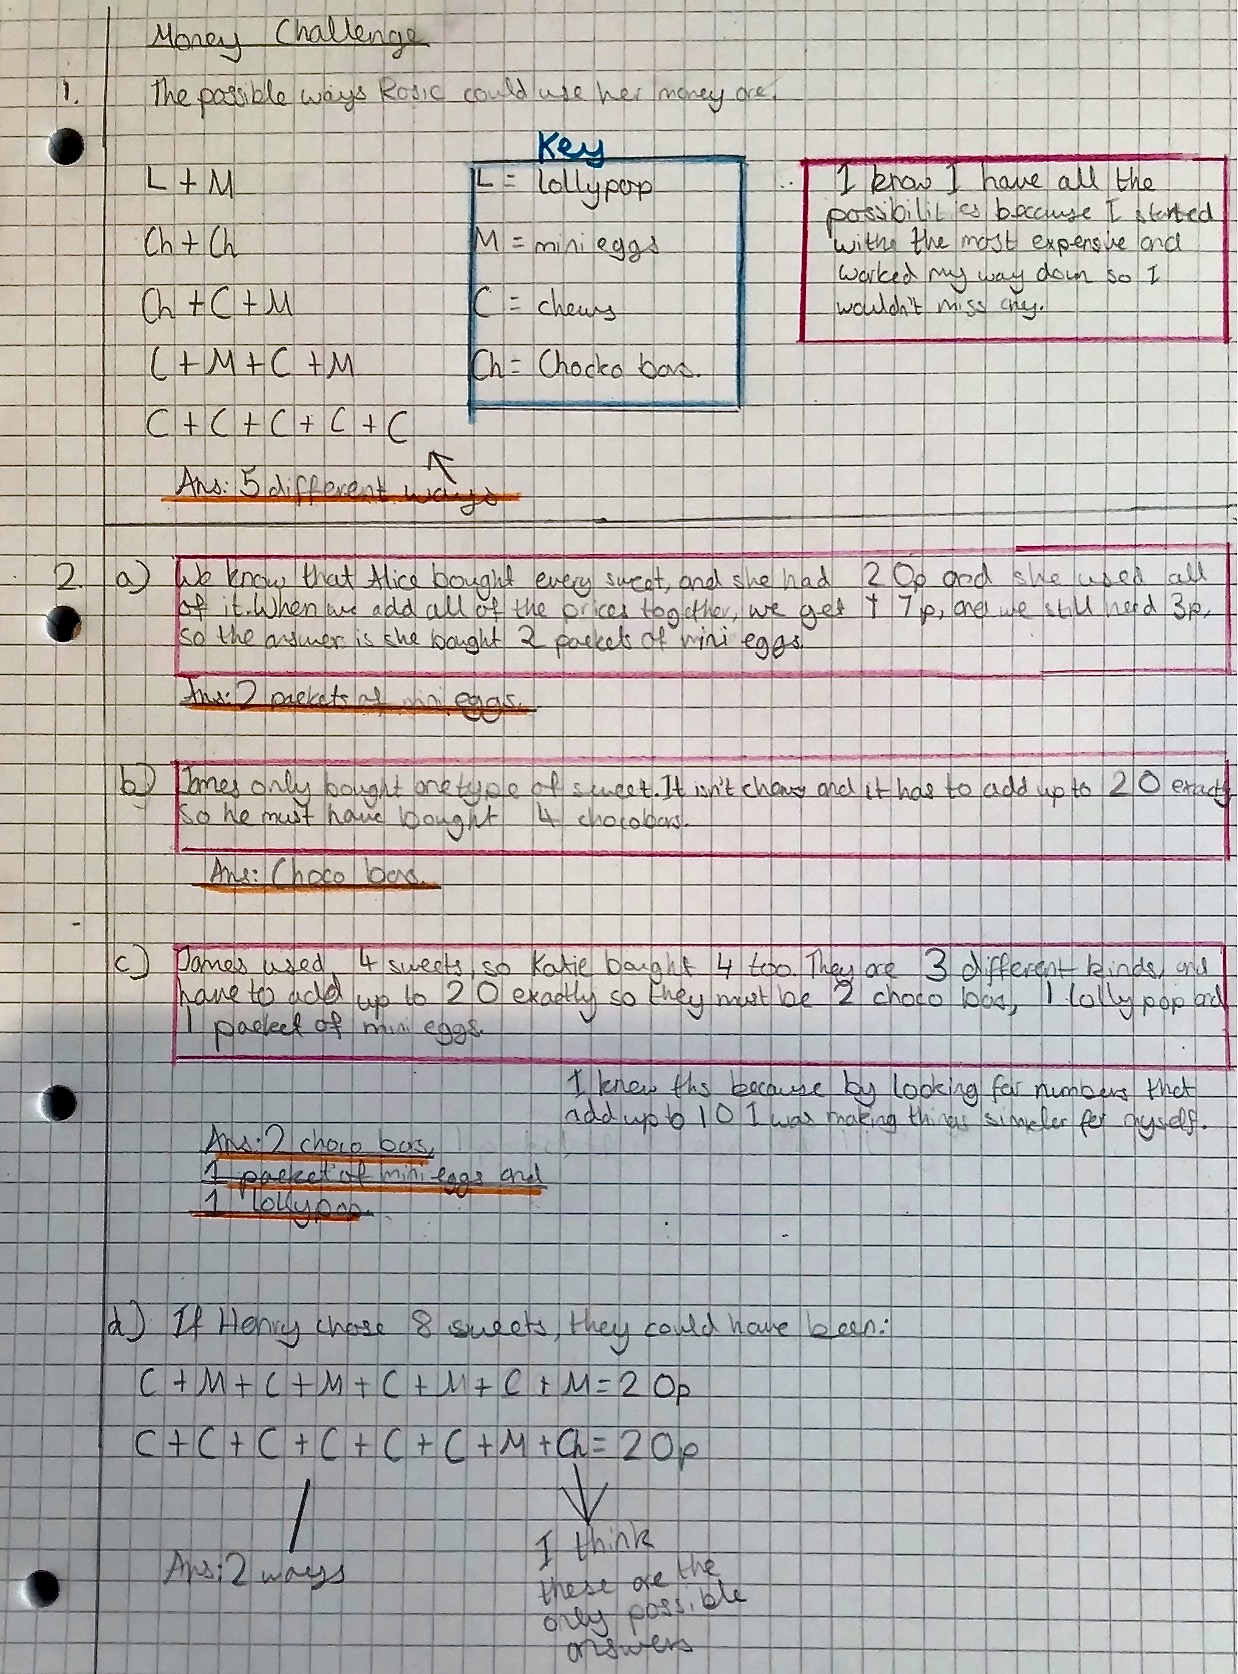 Money Challenge
1. The possible ways Rosie could use her money are.
L + M
Ch + Ch
Ch + C + M
C + M + C + M
C + C + C + C + C
Ans: 5 different ways
Key
L = lollypop
M = mini eggs
C = chews
Ch = Chocko bars.
I know I have all the
possibilities because I started
withe the most expensive and
worked my way down so I
wouldn't miss any.
2. a) We know that Alice bought every sweet, and she had 20p and she used all
of it. When we add all of the prices together, we get 17p, and we still need 3p,
so the answer is she bought 2 packets of mini eggs.
Ans: 2 packets of mini eggs.
b) James only bought one type of sweet. It isn't chews and it has to add up to 20 exactly
so he must have bought 4 chocobars.
Ans: Choco bars.
c) James used 4 sweets, so Katie bought 4 too. They are 3 different kinds, and
have to add up to 20 exactly so they must be 2 choco bars, 1 lollypop and
1 packet of mini eggs.
I knew this because by looking for numbers that
add up to 10 I was making things simeler for myself.
Ans: 2 choco bars,
1 packet of mini eggs and
1 lollypop.
d) If Henry chose 8 sweets, they could have been:
C + M + C + M + C + M + C + M = 20p
C + C + C + C + C + C + M + Ch = 20p
Ans: 2 ways
I think
these are the
only possible
answers